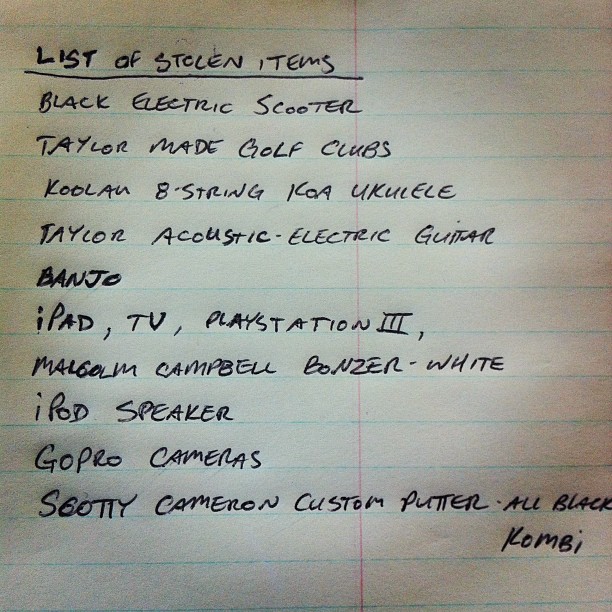 LIST OF STOLEN ITEMS
BLACK ELECTRIC SCOOTER
TAYLOR MADE GOLF CLUBS
KOOLAU 8-STRING KOA UKULELE
TAYLOR ACOUSTIC-ELECTRIC GUITAR
BANJO
iPAD, TV, PLAYSTATION III,
MALCOLM CAMPBELL BONZER-WHITE
iPOD SPEAKER
GOPRO CAMERAS
SCOTTY CAMERON CUSTOM PUTTER-ALL BLACK
KOMBi